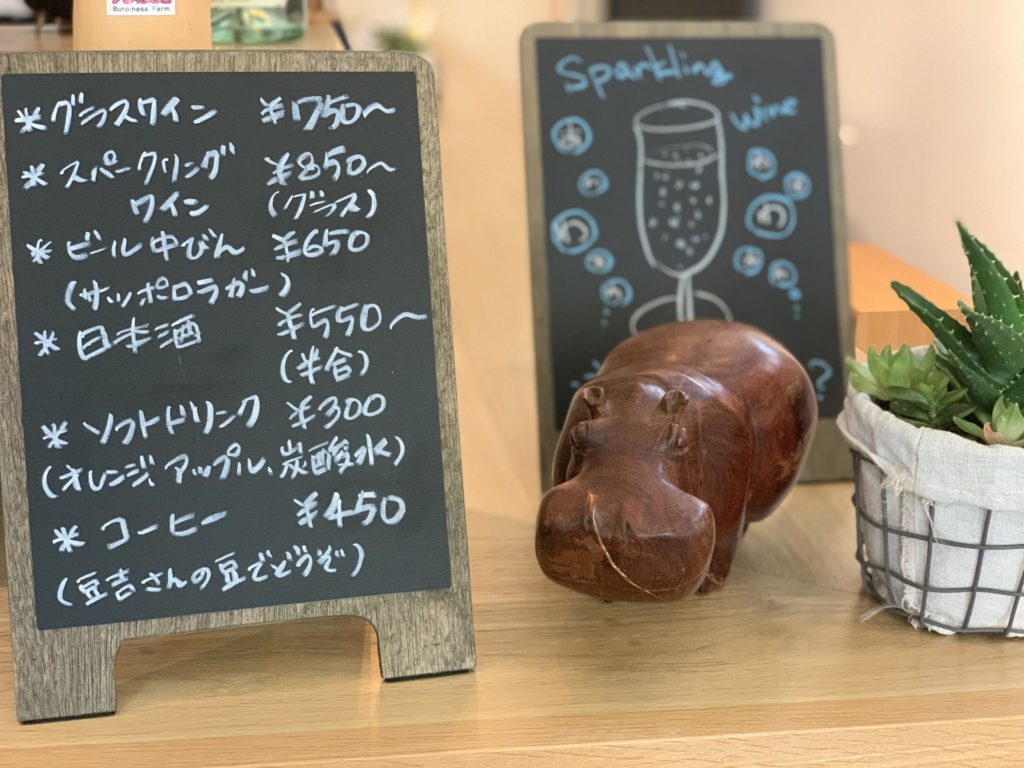 Buroinasa Farm
*グラスワイン ¥750〜
*スパークリング ¥850〜
ワイン (グラス)
*ビール中びん ¥650
(サッポロラガー)
*日本酒 ¥550〜
(半合)
*ソフトドリンク ¥300
(オレンジアップル、炭酸水)
*コーヒー ¥450
(豆吉さんの豆でどうぞ)
Sparkling
wine
?